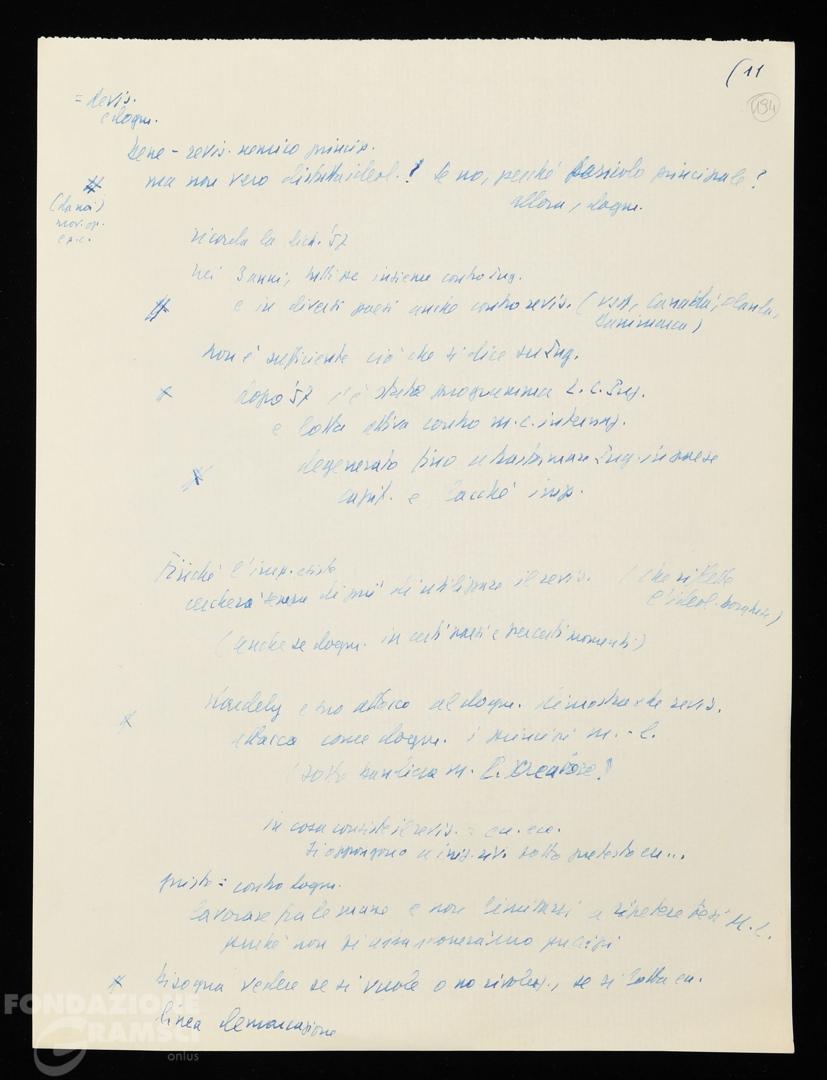 (11
194
= Revis.
e dogm.
Bene - revis. nemico princip.
ma non vero disfatta ideol.! Se no, perché pericolo principale?
allora, dogm.
(da noi)
mov. op.
e p.c.
ricorda la dich. '57
nei 3 anni, tutti insieme contro Jug.
e in diversi paesi anche contro revis. (USA, Canadà, Olanda,
Danimarca)
non è sufficiente ciò che si dice su Jug.
dopo '57 c'è stato programma L.C. Jug.
e lotta attiva contro m.c. internaz.
degenerato fino a trasformare Jug. in paese
capit. e lacché imp.
Finché l'imp. esiste
cercherà di più di utilizzare il revis. (che riflette
l'ideol. borghese)
(anche se dogm. in certi paesi e per certi momenti)
Kardely e suo attacco al dogm. dimostra che revis.
attacca come dogm. i principi m.-l.
sotto bandiera m. l. creatore!
in cosa consiste il revis. =
si oppongono a sotto pretesto
giusto = contro dogm.
lavorare fra le masse e non limitarsi a ripetere tesi M.L.
perché non si
Bisogna vedere se si vuole o no rivoluz., se si lotta
linea demarcazione
FONDAZIONE
GRAMSCI
onlus